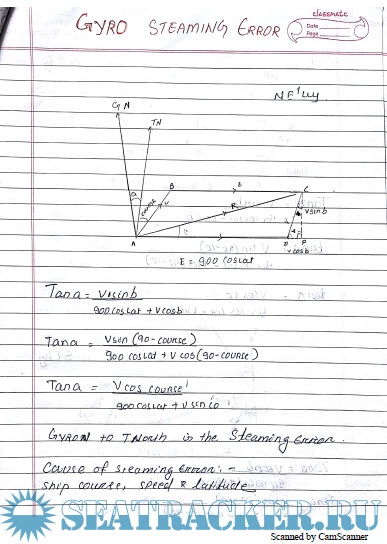 classmate
Date
Page
GYRO STEAMING ERROR
NE'LY
GN
TN
a
COURSE
B
V
E
C
R
V sin b
V
a
A
D
P
V cos b
E = 900 cos Lat
Tan a = V sin b
900 cos Lat + V cos b
Tan a = V sin (90 - course)
900 cos Lat + V cos (90 - course)
Tan a = V cos course
900 cos Lat + V sin co
GYRO N to T North is the Steaming Error.
Course of steaming Error: -
ship course, speed & latitude
SEATRACKER.RU
Scanned by CamScanner